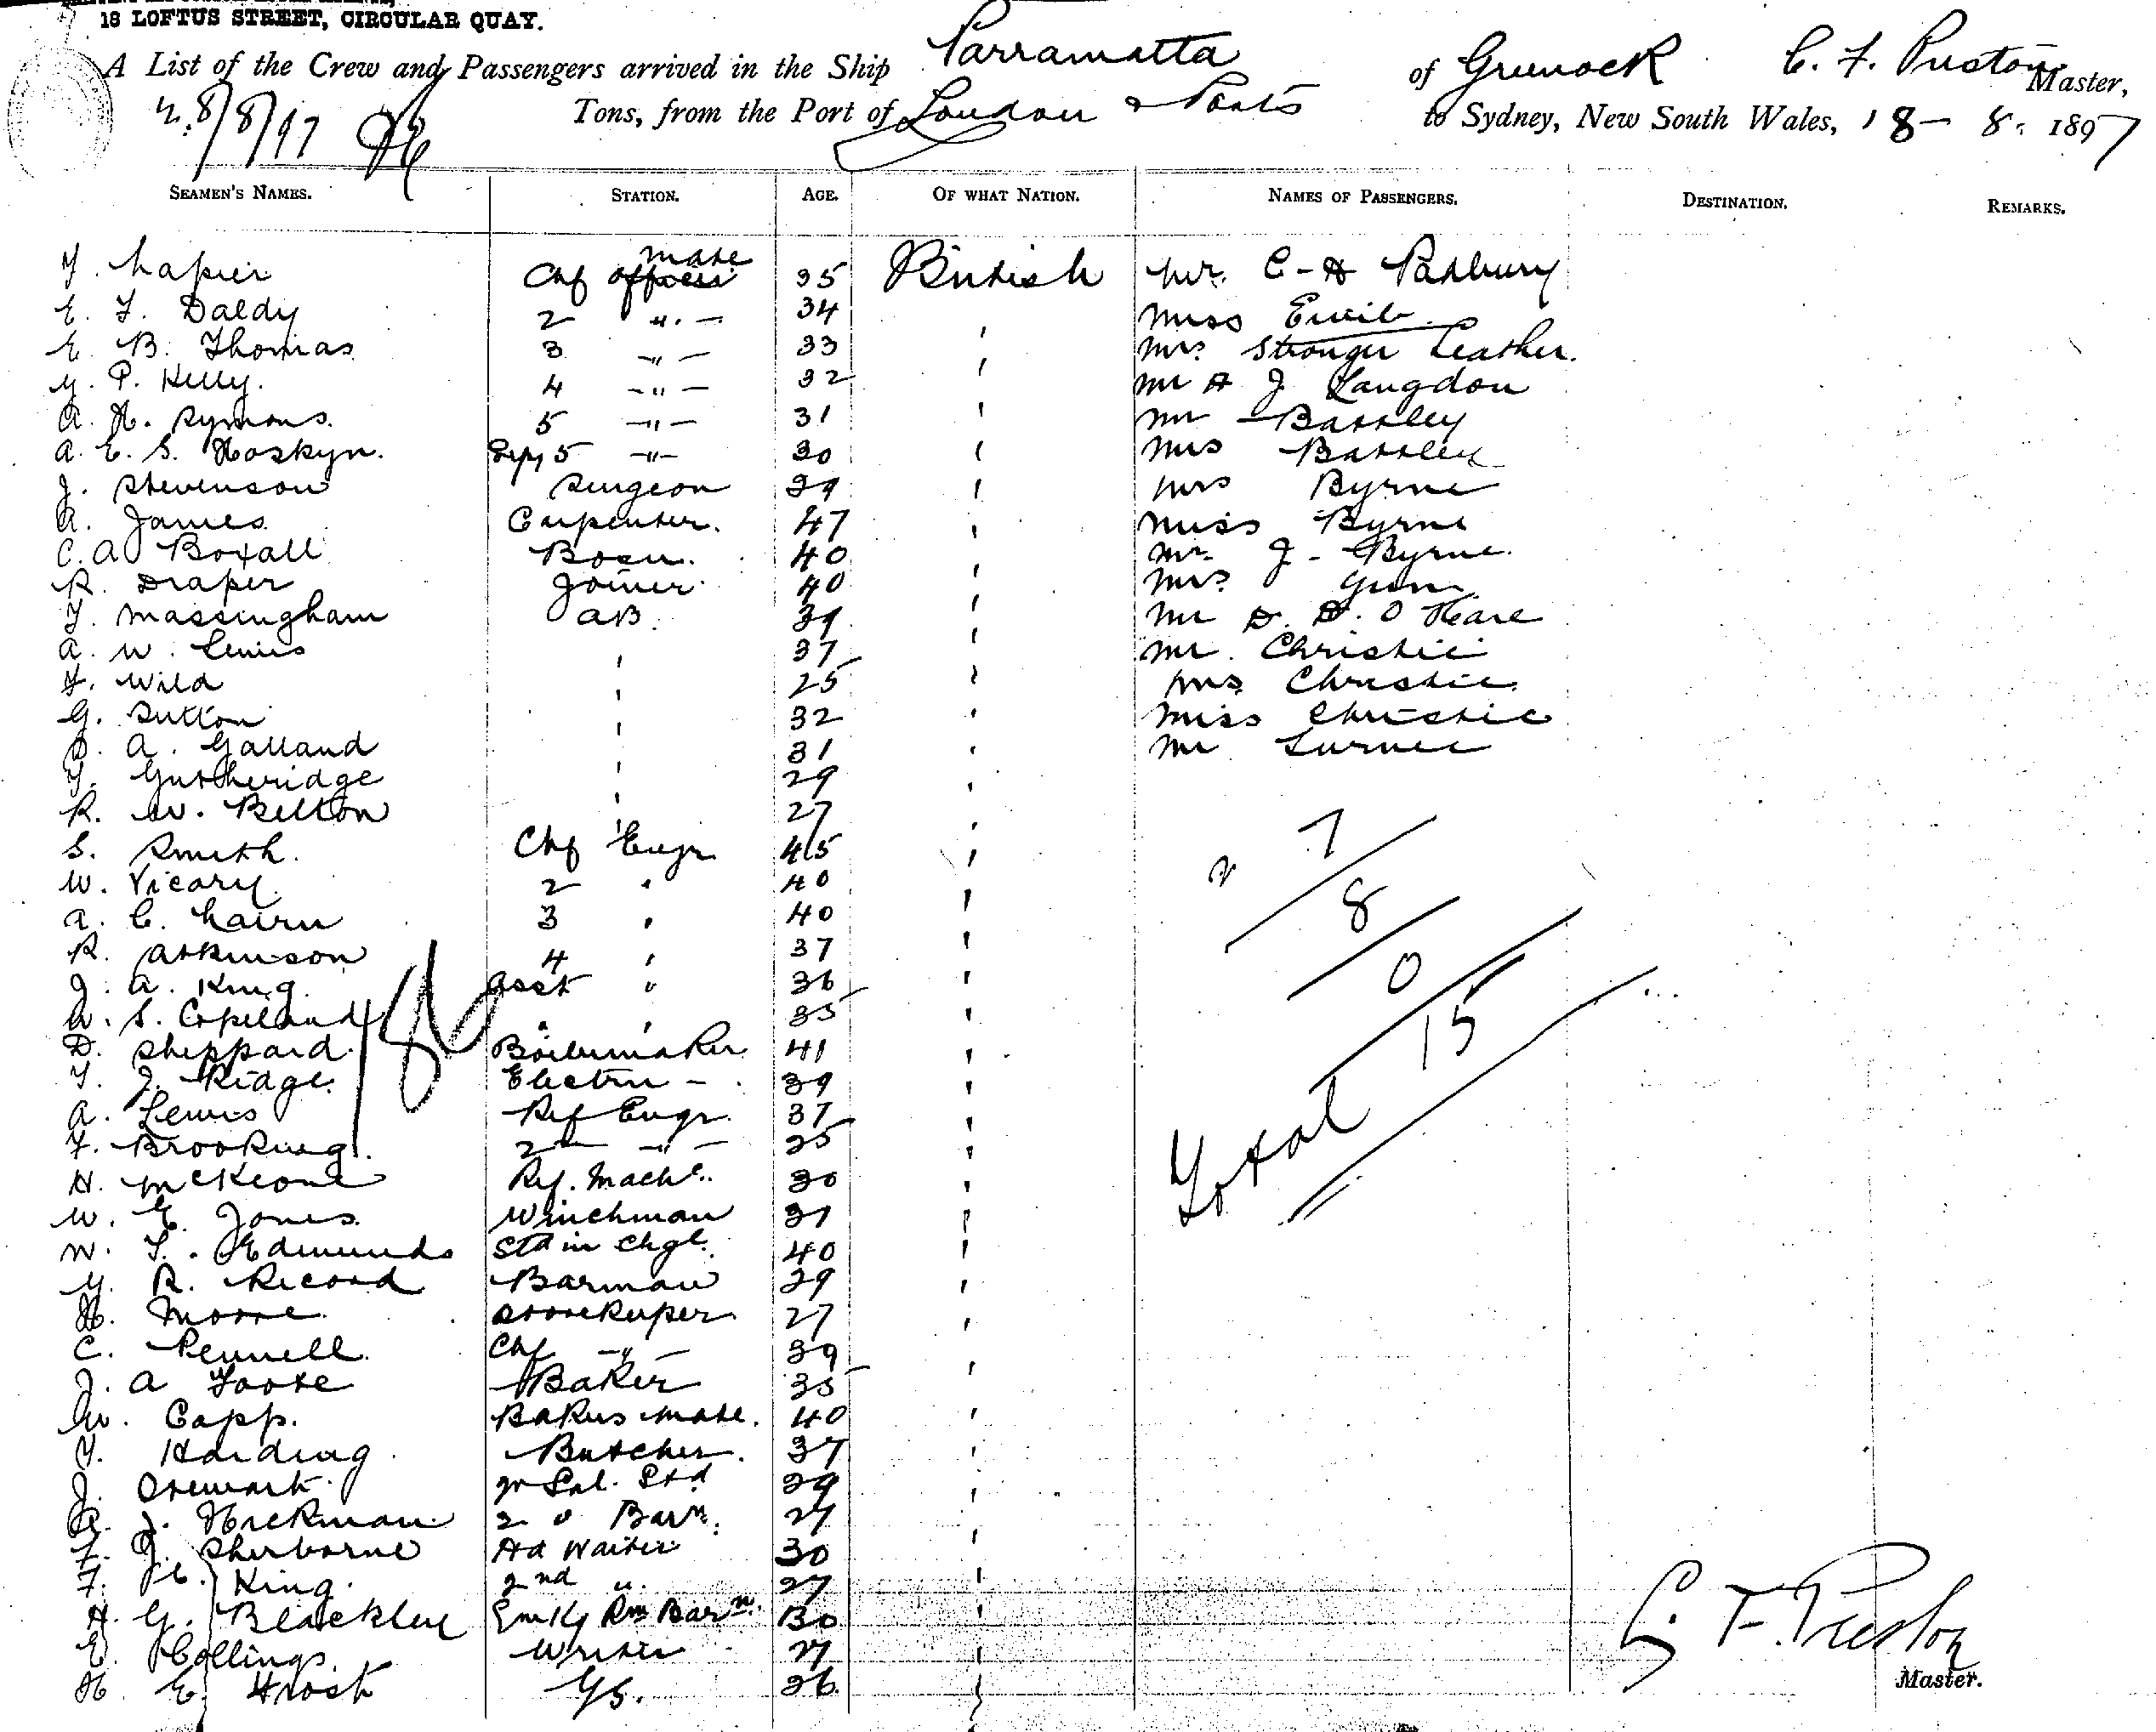 18 LOFTUS STREET, CIRCULAR QUAY.
A List of the Crew and Passengers arrived in the Ship Parramatta of Greenock C. F. Preston Master,
Tons, from the Port of London & Ports to Sydney, New South Wales, 18 - 8. 1897
8/8/97
SEAMEN'S NAMES. STATION. AGE. OF WHAT NATION. NAMES OF PASSENGERS. DESTINATION. REMARKS.
T. Napier Chf officer mate 35 British Mr. C-H Padbury
E. T. Daldy 2 " - 34 Miss
E. B. Thomas 3 -"- 33 Mrs. Stronger Leather.
G. P. Kelly. 4 -"- 32 Mr A J Langdon
A. H. Symons. 5 -"- 31 Mr - Battley
A. E. S. Hoskyn. 5 -"- 30 Mrs Battley
J. Stevenson Surgeon 29 Mrs Byrne
A. James Carpenter. 47 Miss Byrne
C. A Boxall Bosn. 40 Mr. J - Byrne.
R. Draper Joiner 40 Mrs.
T. Massingham AB. 39 Mr D. D. O Hare
A. W. Lewis 37 Mr. Christie
F. Wild 25 Mrs Christie
G. Sutton 32 Miss Christie
A. Galland 31 Mr Turner
T. Gutheridge 29
R. W. Belton 27
S. Smith. Chf Engr 45
W. Vicary. 2 " 40
A. C. Nairn 3 " 40
R. Atkinson 4 " 37
J. A. King. Asst " 36
A. S. Copeland " " 35
D. Sheppard. Boilermaker 41
T. J. Ridge. Electrn - 39
A. Lewis Ref Engr. 37
F. Brooking. 2 -"- 25
H. McKeone Ref. Mach. 30
W. E. Jones Winchman 31
W. T. Edmunds Std in Chge. 40
G. R. Record Barman 29
H. Moore Storekeeper 27
C. Pennell. Chf -"- 39
J. A Foote Baker 35
W. Capp. Bakers mate. 40
T. Harding Butcher. 37
J. Stewart. Std 29
A. J. Hickman. 2 " Barn. 27
F. J. Sherborne Hd Waiter 30
F. C. King. 2nd ". 27
H. G. Blackley Rm Barn. 30
E. Collings. Writer 27
H. E. Frost G.S. 26
146
7
8
0
Total 15
C. F. Preston
Master.